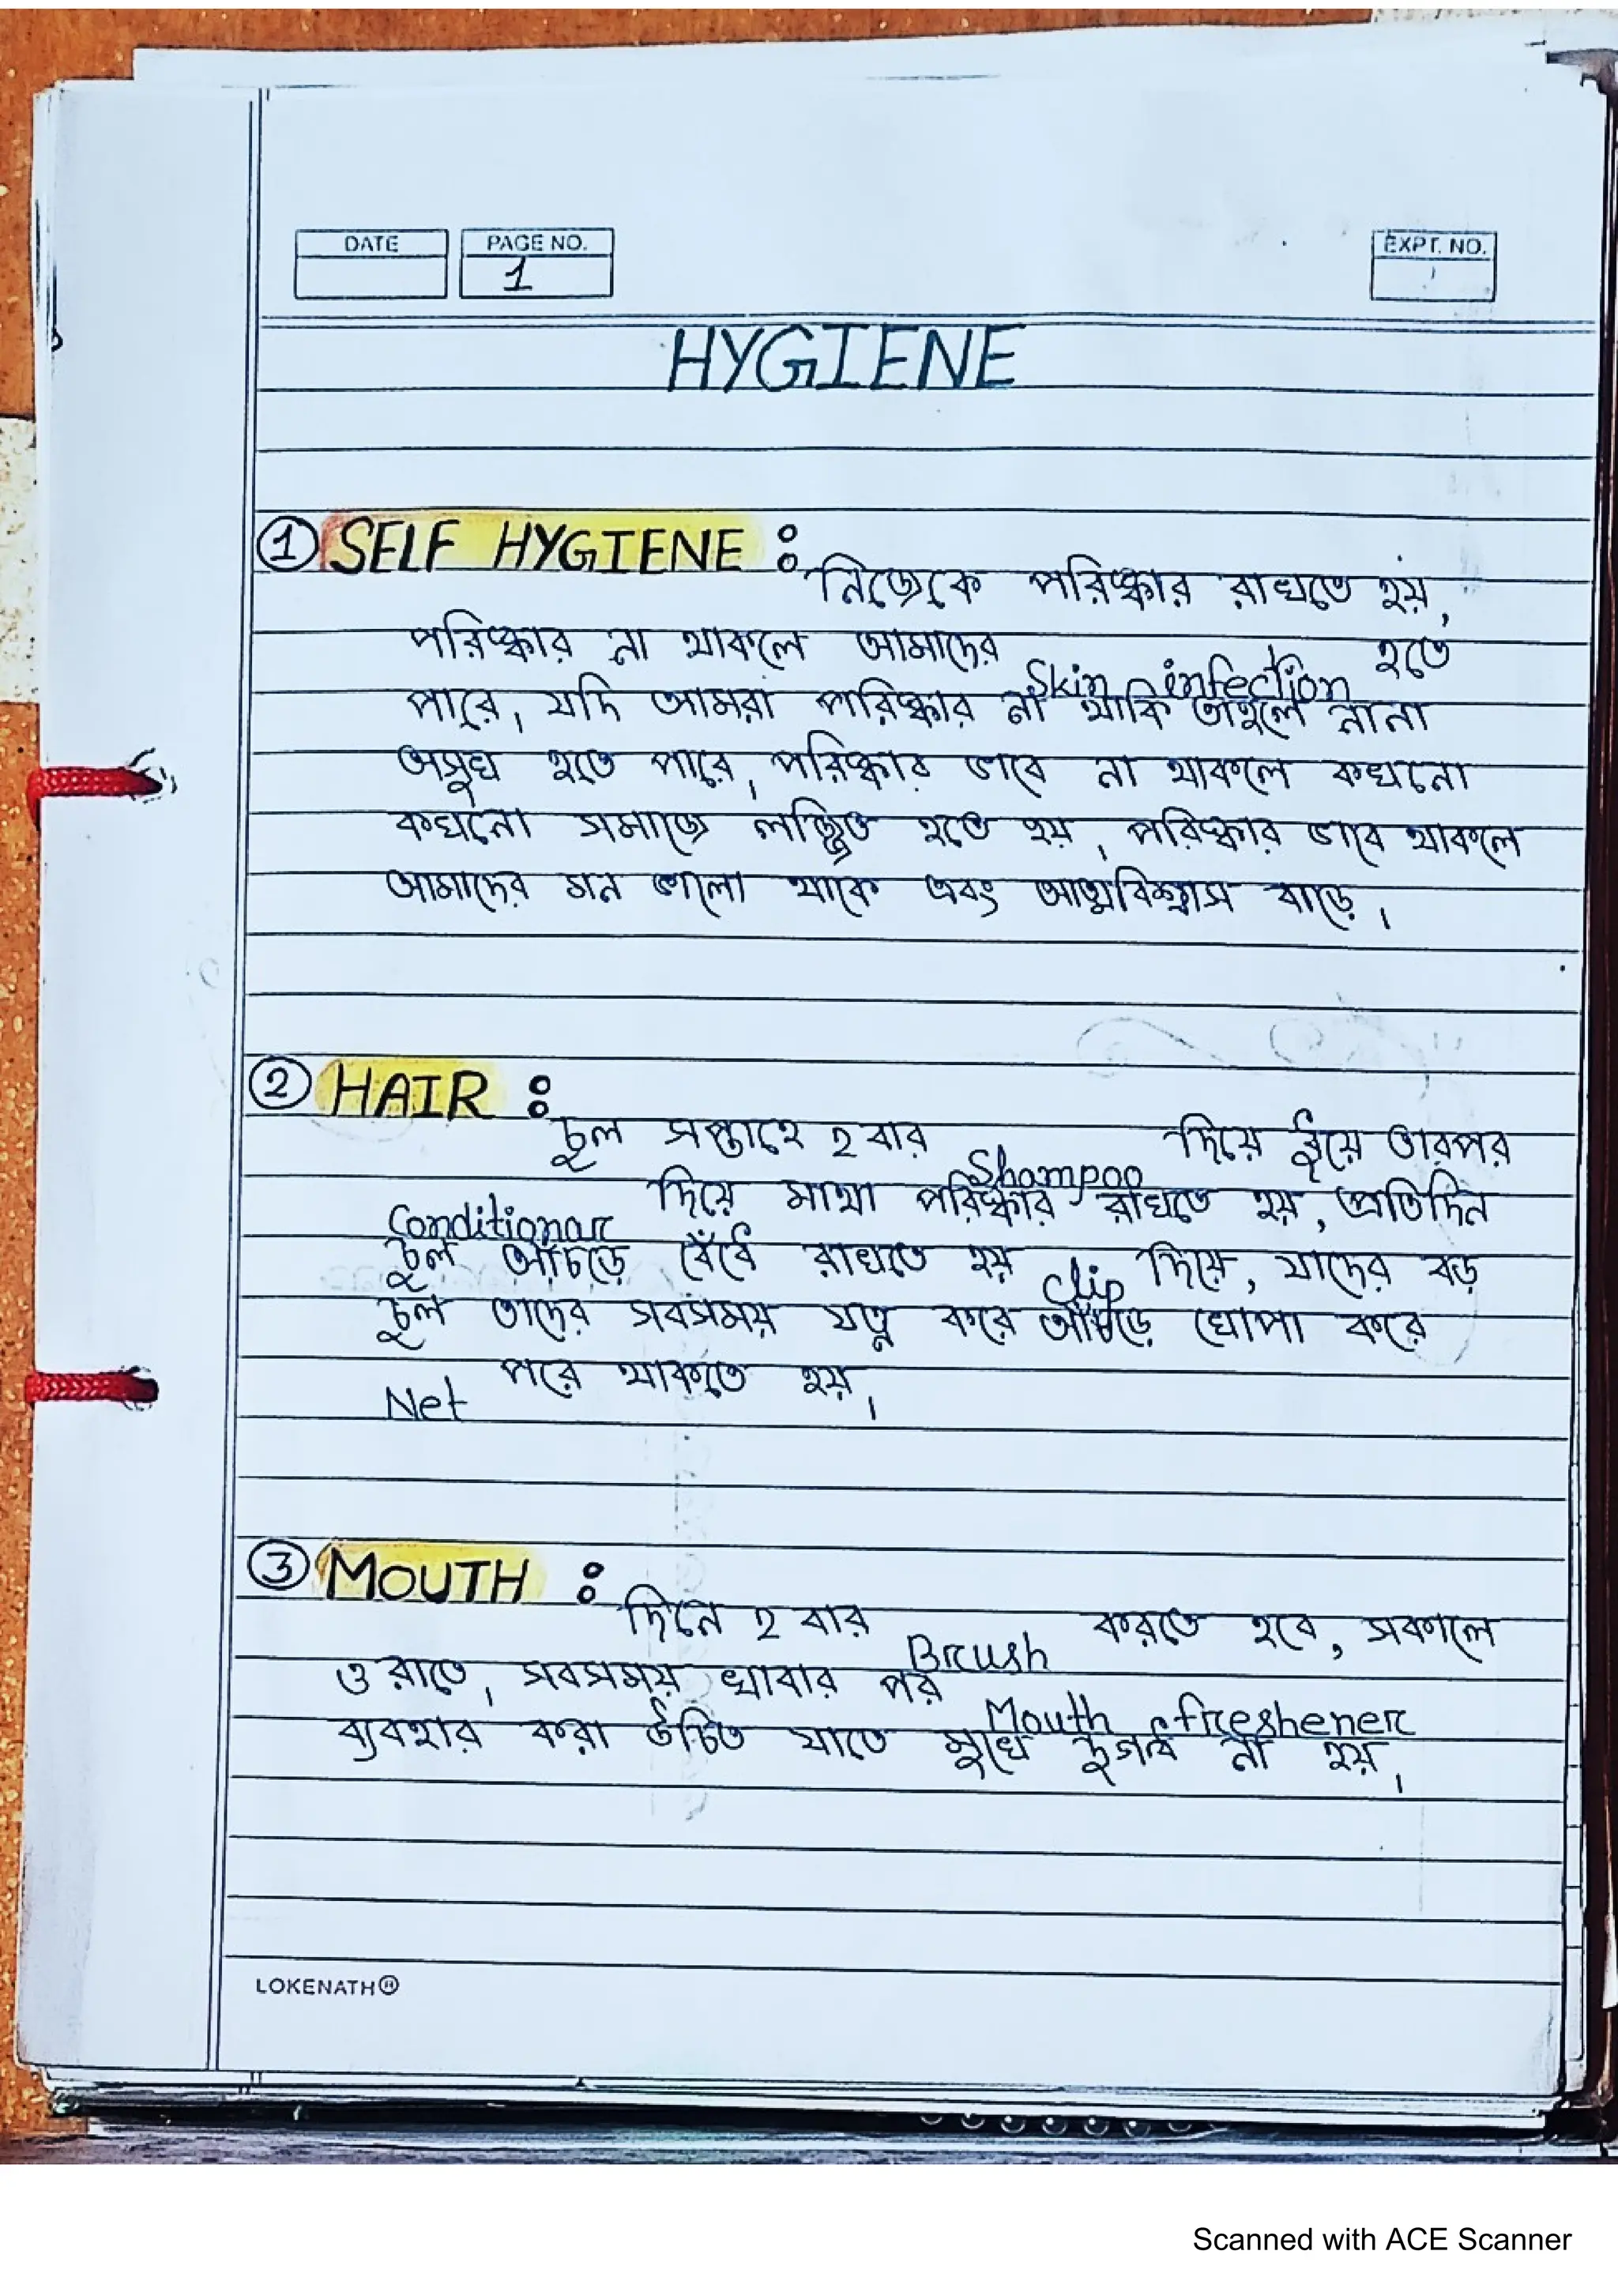 DATE
PAGE NO.
1
EXPT. NO.
HYGIENE
① SELF HYGIENE : নিজেকে পরিষ্কার রাখতে হয়,
পরিষ্কার না থাকলে আমাদের Skin infection হতে
পারে, যদি আমরা পরিষ্কার না থাকি তাহলে নানা
অসুখ হতে পারে, পরিষ্কার ভাবে না থাকলে কখনো
কখনো সমাজে লজ্জিত হতে হয়, পরিষ্কার ভাবে থাকলে
আমাদের মন ভালো থাকে এবং আত্মবিশ্বাস বাড়ে।
② HAIR : চুল সপ্তাহে ২ বার Shampoo দিয়ে ধুয়ে তারপর
Conditionar দিয়ে মাথা পরিষ্কার রাখতে হয়, প্রতিদিন
চুল আঁচড়ে বেঁধে রাখতে হয় clip দিয়ে, যাদের বড়
চুল তাদের সবসময় যত্ন করে আঁচড়ে খোপা করে
Net পরে থাকতে হয়।
③ MOUTH : দিনে ২ বার Brush করতে হবে, সকালে
ও রাতে, সবসময় খাবার পর Mouth freshener
ব্যবহার করা উচিত যাতে মুখে দুর্গন্ধ না হয়।
LOKENATH
Scanned with ACE Scanner